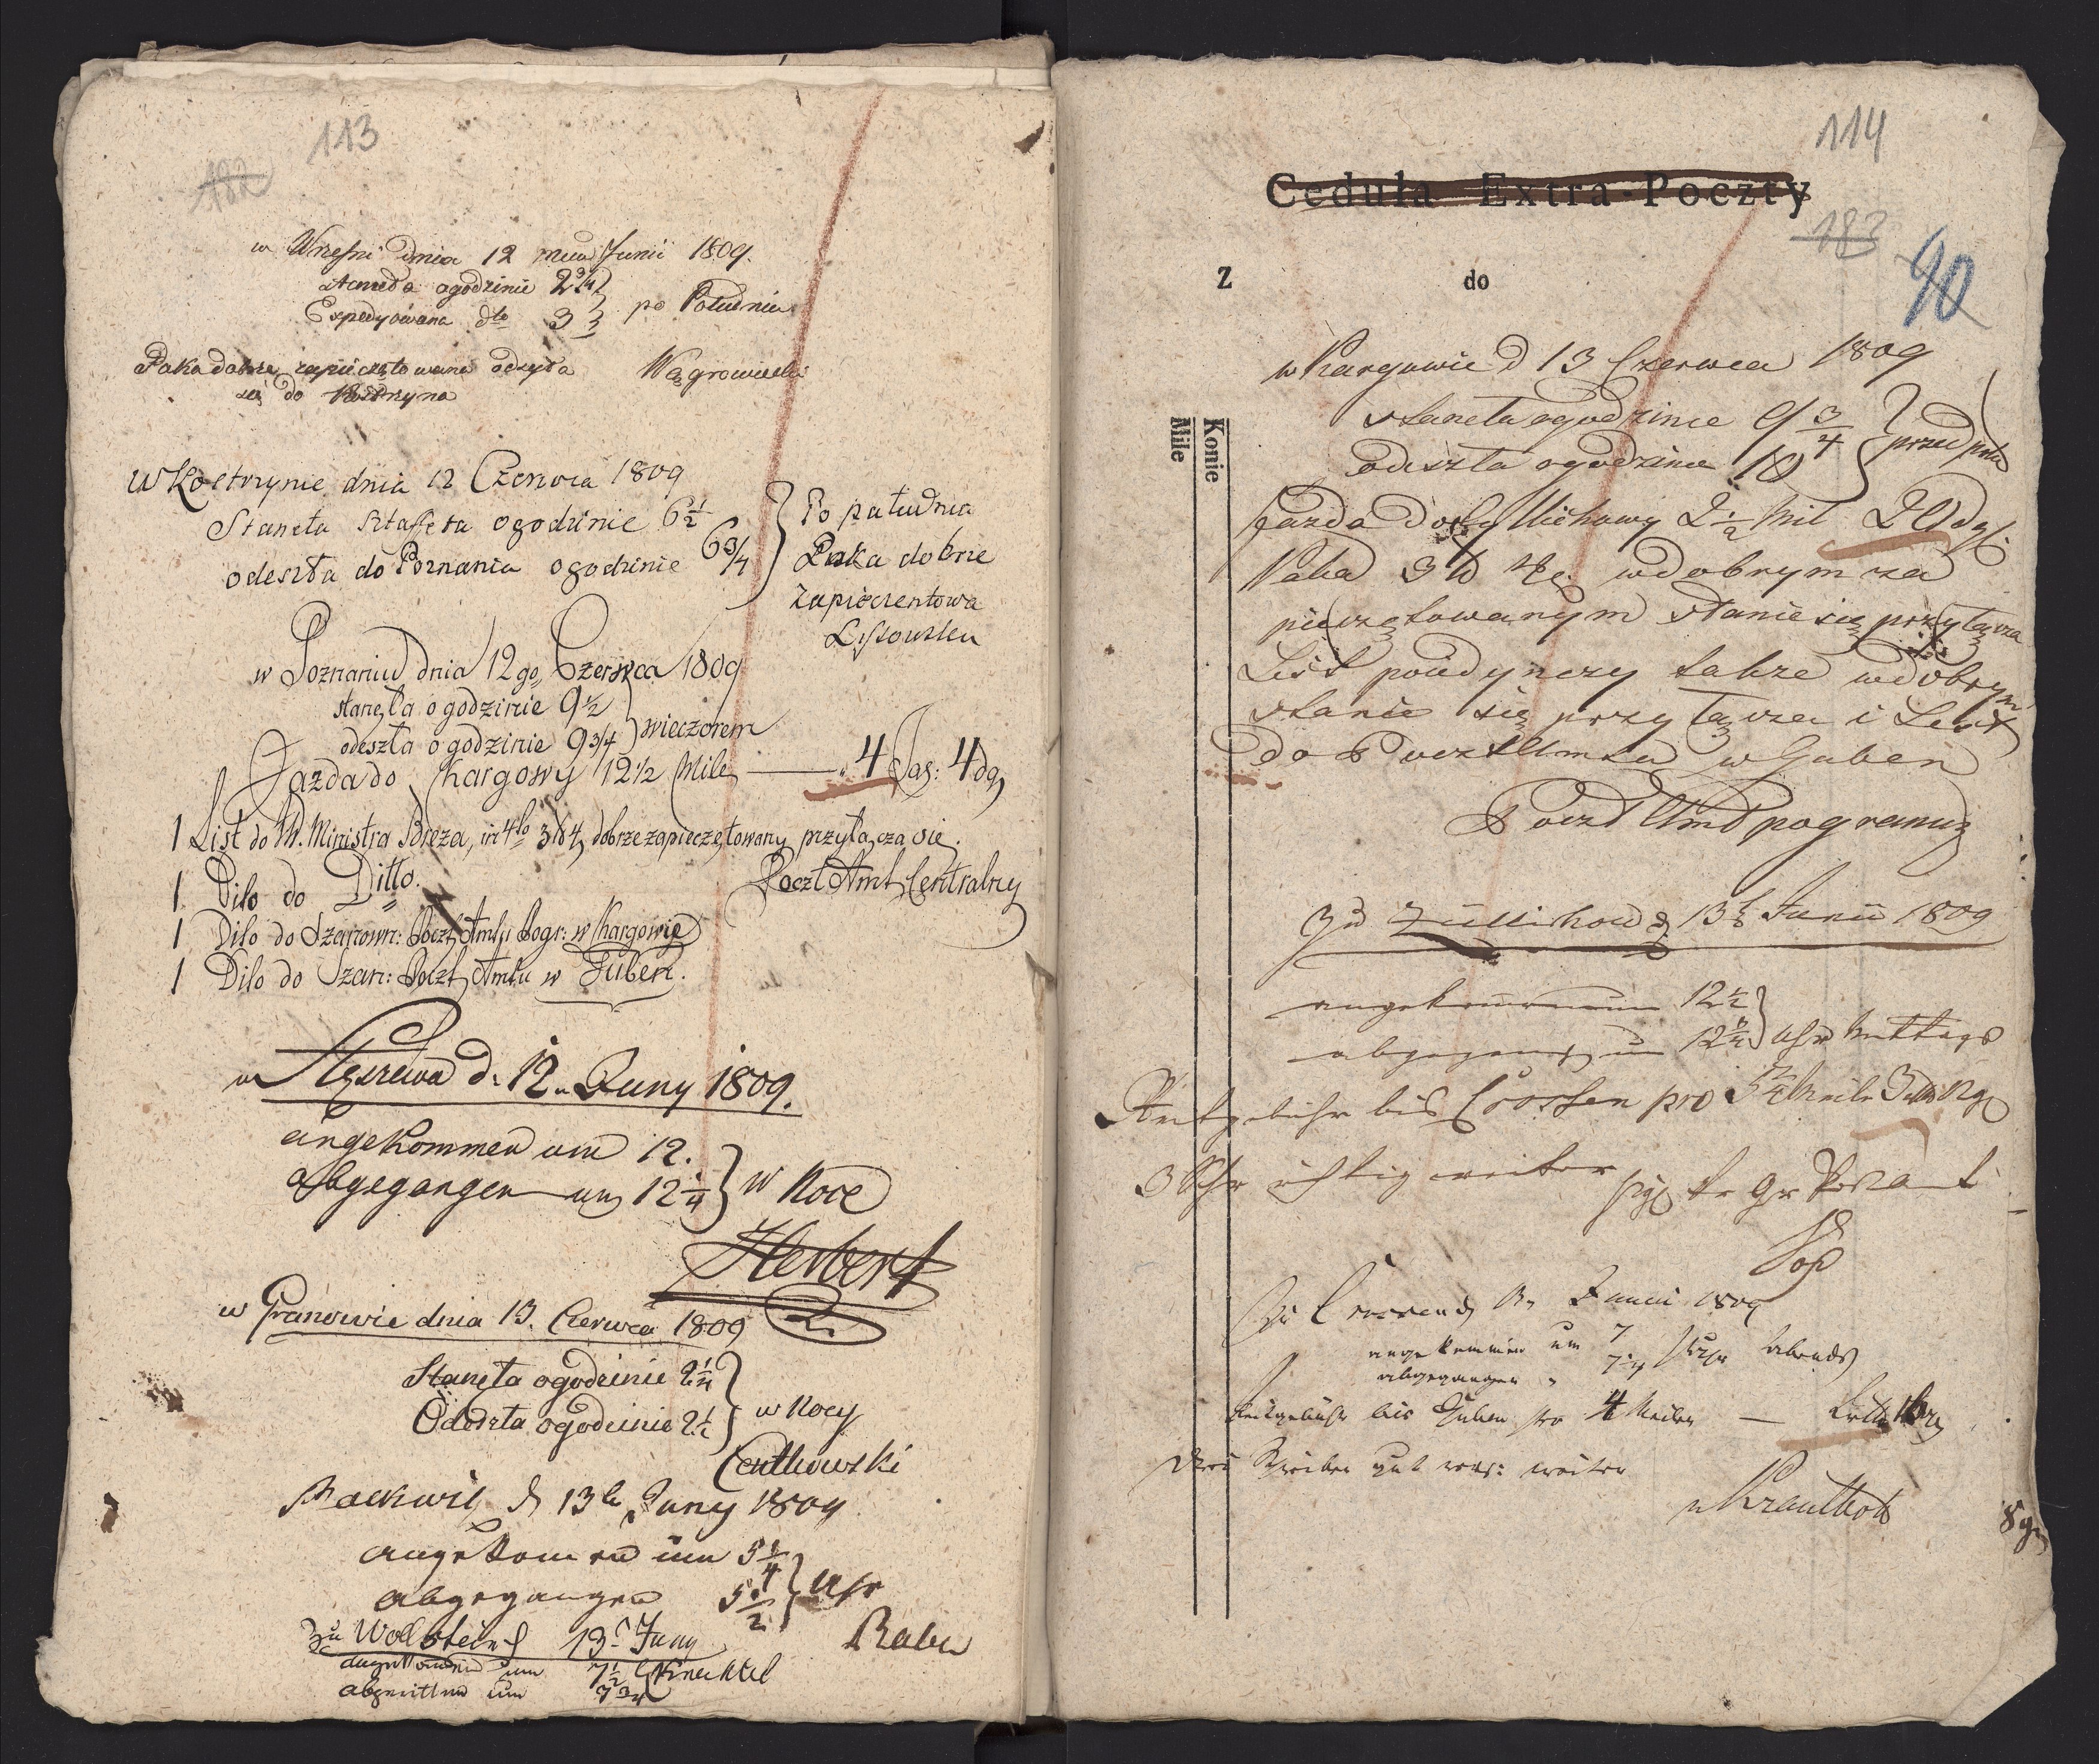 113
182
w Wrześni dnia 12 mca Junii 1809.
stanęła ogodzinie 2 3/4
Expedyowana dto 3
po Południu
Paka dobrze zapieczętowana odsyła
się do Kostrzyna
Wągrowiecki
W Kostrzynie dnia 12 Czerwca 1809
Staneła sztaffeta ogodzinie 6 1/2
odeszła do Poznania ogodzinie 6 3/4
Po południu
Paka dobrze
Zapieczentowa
w Poznaniu dnia 12go Czerwca 1809
stanęła o godzinie 9 1/2
odeszła o godzinie 9 3/4
wieczorem
Jazda do Kargowy 12 1/2 Mile — 4 Tal: 4 dg
1 List do W. Ministra Breza, in 4to 3 lb 4, dobrze zapieczętowany przyłącza się.
1 Dito do Ditto.
Poczt Amt Centralny
1 Dito do Szanown: Poczt Amtu Pogr: w Kargowie
1 Dito do Szan: Poczt Amtu w Guben.
w Stęszewa d. 12 Juny 1809.
angekommen um 12.
abgegangen um 12 1/4
w Noce
Herbert
w Granowie dnia 13. Czerwca 1809
Stanęła ogodzinie 2 1/4
Odeszła ogodzinie 2 1/2
w Nocy
Centkowski
Rackwitz d 13t Juny 1809
angekommen um 5 1/4
abgegangen 5 1/2
Uhr
Rabe
Zu Wollstein d 13t Juny
angekommen um 7 1/2
abgeritten um 7 3/4
114
Ceduła Extra-Poczty
183
90
Z do
Konie
Mile
w Kargowie d 13 Czerwca 1809
staneła ogodzinie 9 3/4
odeszła ogodzinie 10
przed poł
Jazda do Cyllichowy 2 1/2 Mil 20 dg.
Paka 3 lb 4 w dobrym za
pieczętowanym stanie się przyłącza
List poiedynczy takze w dobrym
stanie się przyłącza i List
do Poczt Amtu w Guben
Poczt Amt pogranicz
Zu Züllichow d 13t Junii 1809
angekommen 12 1/2
abgegang um 12 3/4
Uhr Mittags
Reitgebühr bis Crossen pro 5 3/4 Meile 3
richtig weiter
Zu Crossen d 13 Junii 1809
angekommen um 7
abgegangen " 7 1/4
Uhr Abends
Reitgebühr bis Guben pro 4 Meilen —
Drei Schreiben gut vers: weiter
Krauthof